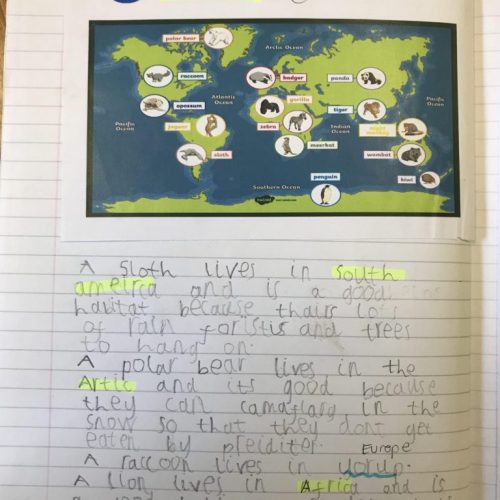 polar bear
Arctic Ocean
raccoon
badger
panda
opossum
Atlantic
Ocean
gorilla
tiger
Pacific
Ocean
Pacific
Ocean
jaguar
zebra
Indian
Ocean
sloth
meerkat
wombat
kiwi
penguin
Southern Ocean
A sloth lives in south
ameirca and is a good
habitat because thairs lots
of rain foristis and trees
to hang on.
A polar bear lives in the
Artic and its good because
they can camaflarg in the
snow so that they dont get
eaten by preiditer.
Europe
A raccoon lives in yorup.
A lion lives in Africa and is